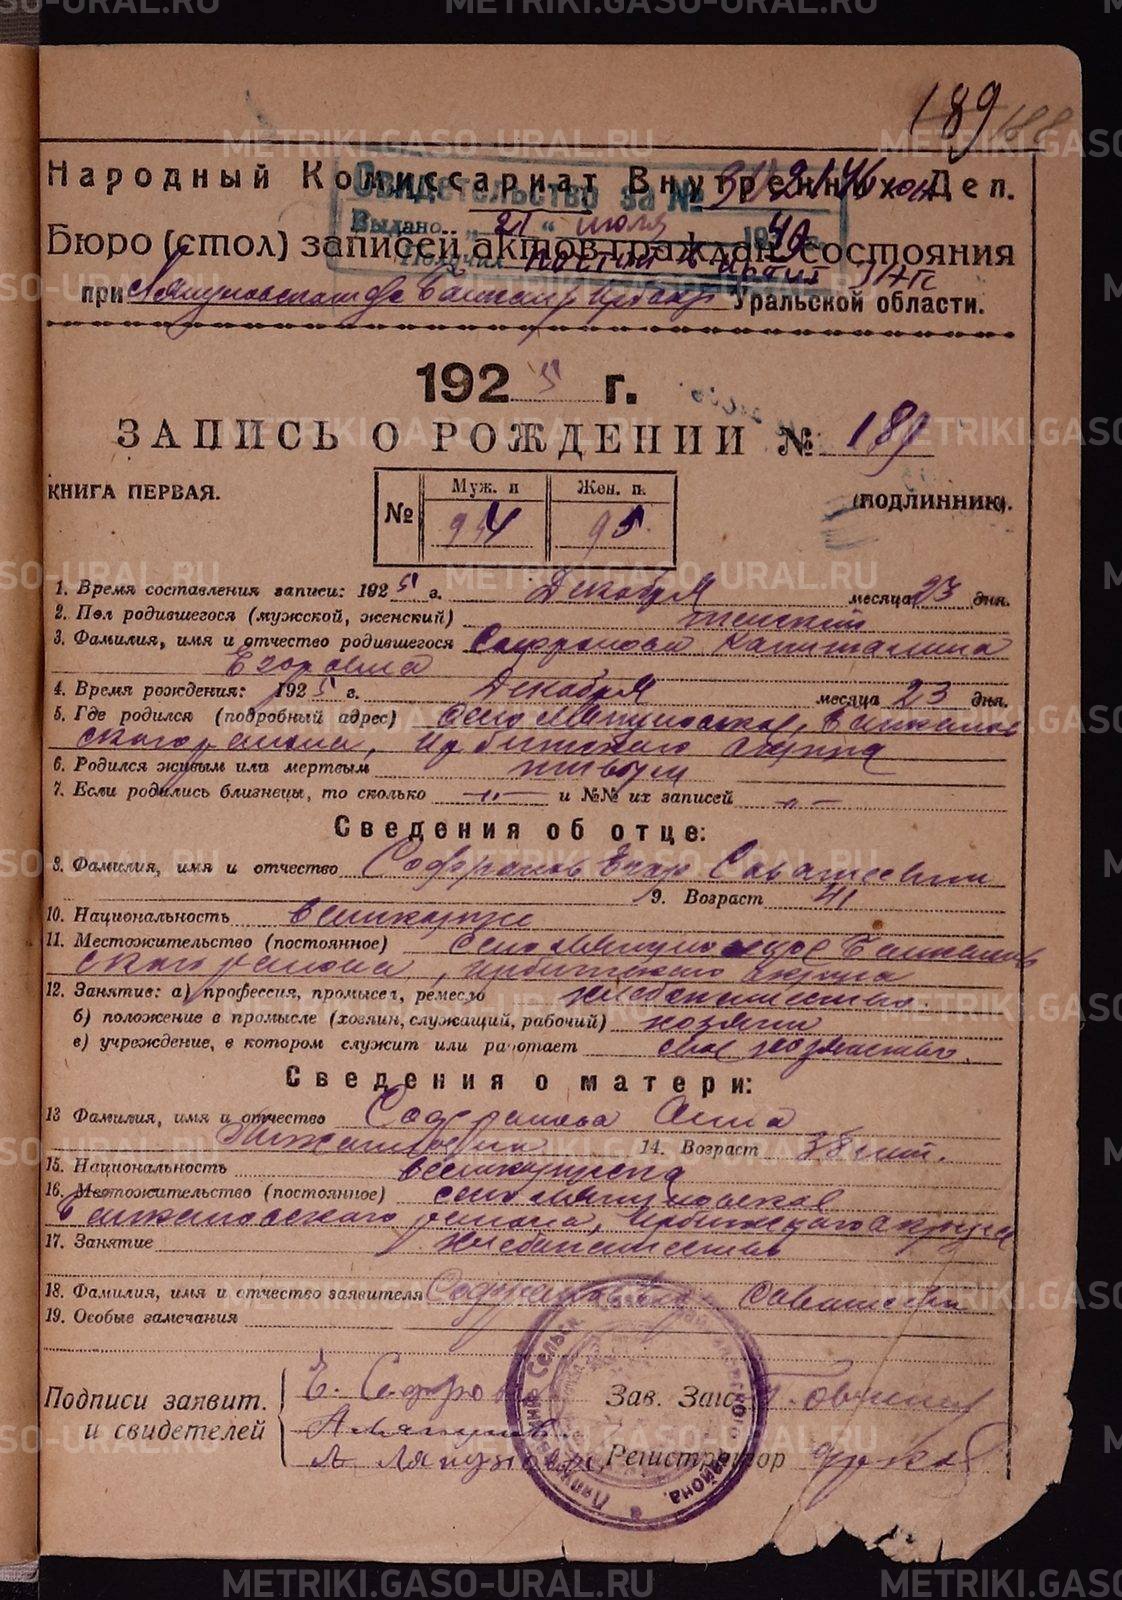 189
Народный Комиссариат Внутренних Деп.
Свидетельство за №
Выдано "21" июля 1949 г.
Бюро (стол) записей актов граждан. состояния
при Уральской области.
1925 г.
ЗАПИСЬ О РОЖДЕНИИ № 189
КНИГА ПЕРВАЯ. (ПОДЛИННИК).
№ Муж. п Жен. п.
94 95.
1. Время составления записи: 1925 г. Декабря месяца 23 дня.
2. Пол родившегося (мужской, женский) женский
3. Фамилия, имя и отчество родившегося Софронова Капиталина
Егоровна
4. Время рождения: 1925 г. Декабря месяца 23 дня.
5. Где родился (подробный адрес) село Ляпуновское, Байкалов
ского района, Ирбитского округа
6. Родился живым или мертвым живым
7. Если родились близнецы, то сколько -"- и №№ их записей -"-
Сведения об отце:
8. Фамилия, имя и отчество Софронов Егор Саватеевич
9. Возраст 41
10. Национальность великорус
11. Местожительство (постоянное) село Ляпуновское Байкалов
ского района, Ирбитского округа
12. Занятие: а) профессия, промысел, ремесло хлебопашество.
б) положение в промысле (хозяин, служащий, рабочий) хозяин
в) учреждение, в котором служит или работает свое хозяйство.
Сведения о матери:
13 Фамилия, имя и отчество Софронова Анна
14. Возраст 38 лет.
15. Национальность великорусска
16. Местожительство (постоянное) село Ляпуновское
Байкаловского района, Ирбитского округа
17. Занятие хлебопашество
18. Фамилия, имя и отчество заявителя Софронов Егор Саватеевич
19. Особые замечания
Подписи заявит. и свидетелей
Е. Софронов Зав. Загс
А Ляпунов
А. Ляпунов Регистратор
METRIKI.GASO-URAL.RU